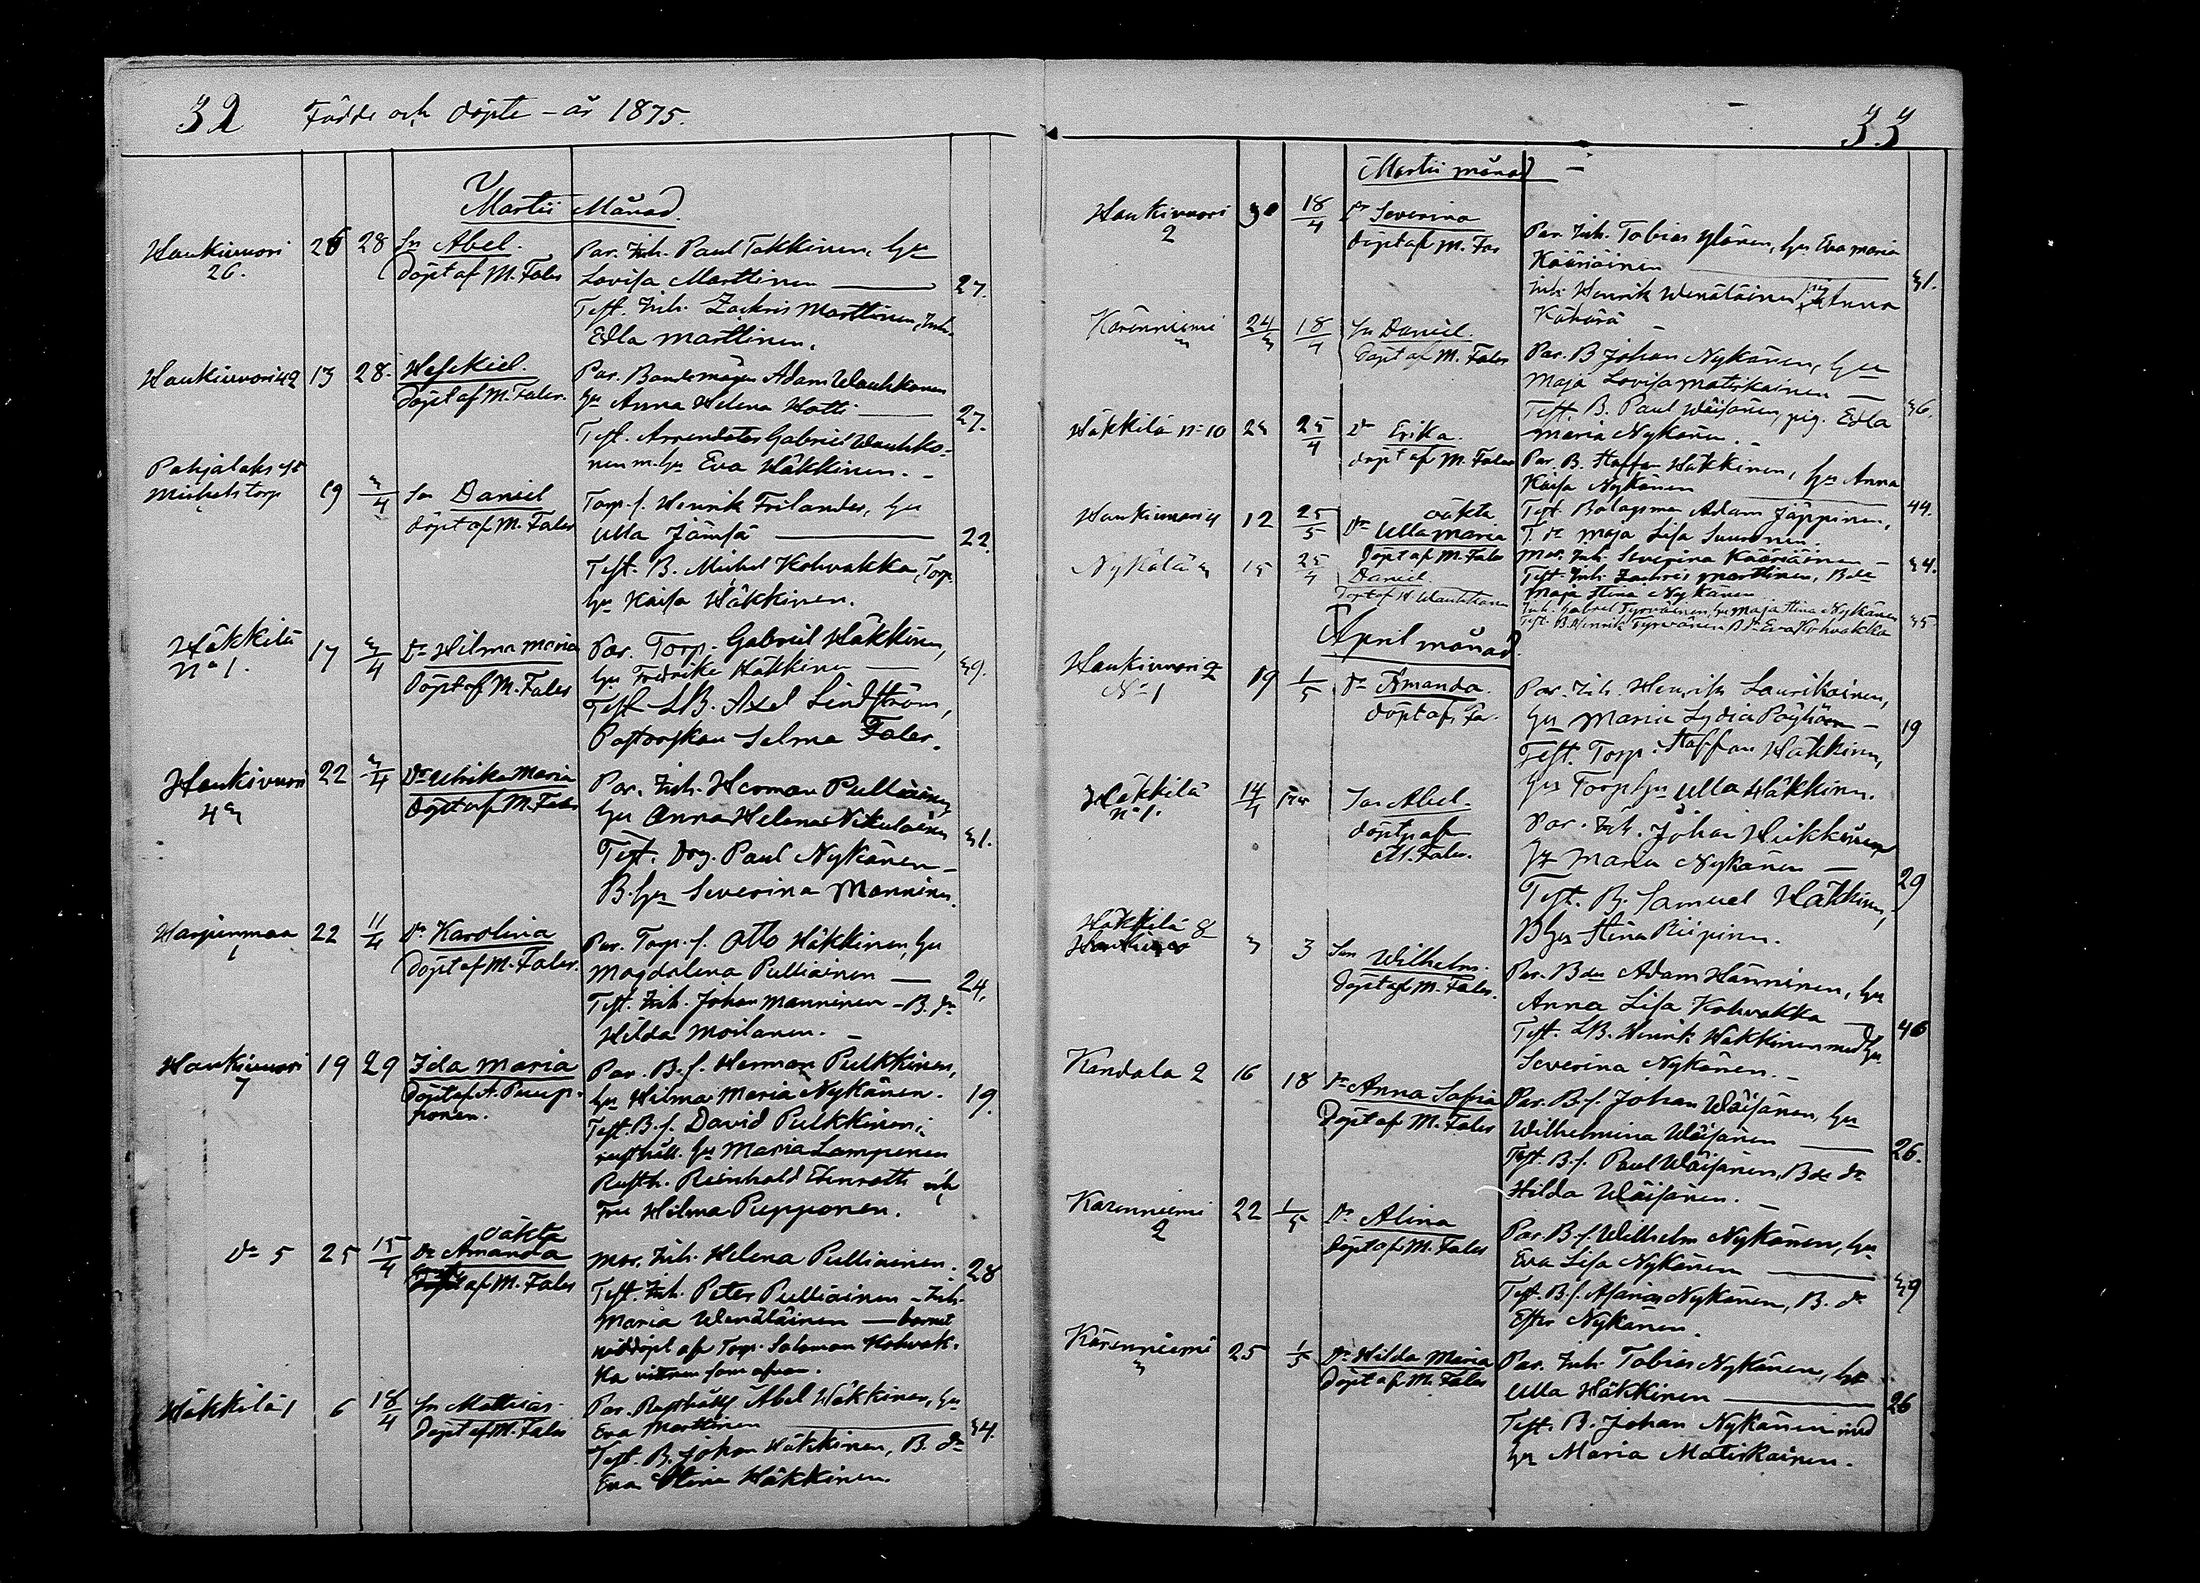 32 Födde och döpte - år 1875.
Martii Månad.
Haukivuori 26. 26 28 Sn Abel. Par. Inh. Paul Takkinen, Hu
döpt af M. Faler Lovisa Marttinen — 27.
Test. Inh. Zackris Marttinen, Inh.
Edla Marttinen.
Haukivuori 42 13 28. Hesekiel. Par. Adam Wauhkonen
döpt af M. Faler. Hu Anna Helena Hotti — 27.
Test. Arrendator Gabriel Wauhko-
nen m. Hu Eva Häkkinen. -
Pohjalaks 45
Michels torp 19 3/4 Sn Daniel Torp. s. Henrik Frilander, Hu
döpt af M. Faler Ulla Jämsä — 22.
Test. B. Michel Kohvakka, Torp.
Hu Kaisa Häkkinen.
Häkkilä 17 3/4 Dr Hilma Maria Par. Torp. Gabriel Häkkinen,
No 1. döpt af M. Faler Hu Fredrike Häkkinen — 39.
Test LB. Axel Lindström,
Pastorskan Selma Faler.
Haukivuori 22 3/4 Dr Ulrika Maria Par. Inh. Herman Pulliainen
43 döpt af M. Faler Hu Anna Helena Nikulainen 31.
Test. Drg. Paul Nykänen -
B. Hu Severina Manninen.
Harjunmaa 22 11/4 Dr Karolina Par. Torp. s. Otto Häkkinen, Hu
1 döpt af M. Faler. Magdalena Pulliainen — 24.
Test. Inh. Johan Manninen - B. dr
Hilda Moilanen. -
Haukivuori 19 29 Ida Maria Par. B. s. Herman Pulkkinen,
7 döpt af A. Pumpponen. Hu Hilma Maria Nykänen. 19.
Test. B. s. David Pulkkinen,
rusthåll. Hu Maria Lamponen
Rusth. Reinhold Elenroth och
Fru Hilma Pupponen.
oäkta
Do 5 25 15/4 Dr Amanda Mor. Inh. Helena Pulliainen. 28
af M. Faler Test. Inh. Peter Pulliainen - Inh.
Maria Wenäläinen — barnet
nöddöpt af Torp. Salomon Kohvak-
ka vittnen som ofvan.
Häkkilä 1 6 18/4 Sn Mattias. Par. Rusthåll Abel Häkkinen, Hu
döpt af M. Faler Eva Marttinen — 34.
Test. B. Johan Häkkinen, B. dr
Eva Stina Häkkinen.
33
Martii månad -
Haukivuori 30 18/4 Dr Severina Par. Inh. Tobias Ylönen, Hu Eva Maria
2 döpt af M. Fas Kääriäinen — 31.
Inh. Henrik Wenäläinen, pig Anna
Kähärä -
Kärenniemi 24/3 18/4 Sn Daniel. Par. B Johan Nykänen, Hu
3 döpt af M. Faler Maja Lovisa Matikainen — 36.
Test. B. Paul Wäisänen, pig. Edla
Maria Nykänen. -
Häkkilä No 10 23 25/4 Dr Erika. Par. B. Staffan Häkkinen, Hu Anna
döpt af M. Faler Kaisa Nykänen — 44.
Test. Bolagsman Adam Jäppinen,
T. dr Maja Lisa Suuronen.
oäkta
Haukivuori 4 12 25/5 Dr Ulla Maria Mor. Inh. Severina Kääriäinen - 34.
döpt af M. Faler Test. Inh. Zackris Marttinen, B.dr
Maja Stina Nykänen
Nykälä 3 15 25/4 Daniel. Inh. Gabriel Tyrväinen, Hu Maja Stina Nykänen 35.
döpt af H. Wauhkonen Test. B. Henrik Tyrväinen B Dr Eva Kohvakka
April månad
Haukivuori 2 19 1/5 Dr Amanda. Par. Inh. Henrik Laurikainen,
No 1 döpt af Fa. Hu Maria Lydia Pöyhönen - 19
Test. Torp. Staffan Häkkinen,
Torp Hu Ulla Häkkinen.
Häkkilä 14/4 Sn Abel. Par. Inh. Johan Häkkinen
no 1. döpt af Hu Maria Nykänen — 29
M. Faler. Test. B. Samuel Häkkinen,
B Hu Stina Riipinen.
Häkkilä 8 3 3 Son Wilhelm. Par. Bdn Adam Hänninen, Hu
döpt af M. Faler. Anna Lisa Kohvakka — 46
Test. LB. Henrik Häkkinen med Hu
Severina Nykänen. -
Kandala 2 16 18 Dr Anna Sofia Par. B. s. Johan Wäisänen, Hu
döpt af M. Faler Wilhelmina Wäisänen — 26.
Test. B. s. Paul Wäisänen, B dr
Hilda Wäisänen. -
Kärenniemi 22 1/5 Dr Alina Par B. s. Wilhelm Nykänen, Hu
2 döpt af M. Faler Eva Lisa Nykänen — 39
Test. B. s. Asarias Nykänen, B. dr
Ester Nykänen.
Kärenniemi 25 1/5 Dr Hilda Maria Par. Inh. Tobias Nykänen, Hu
3 döpt af M. Faler Ulla Häkkinen — 26
Test. B. Johan Nykänen med
Hu Maria Matikainen.